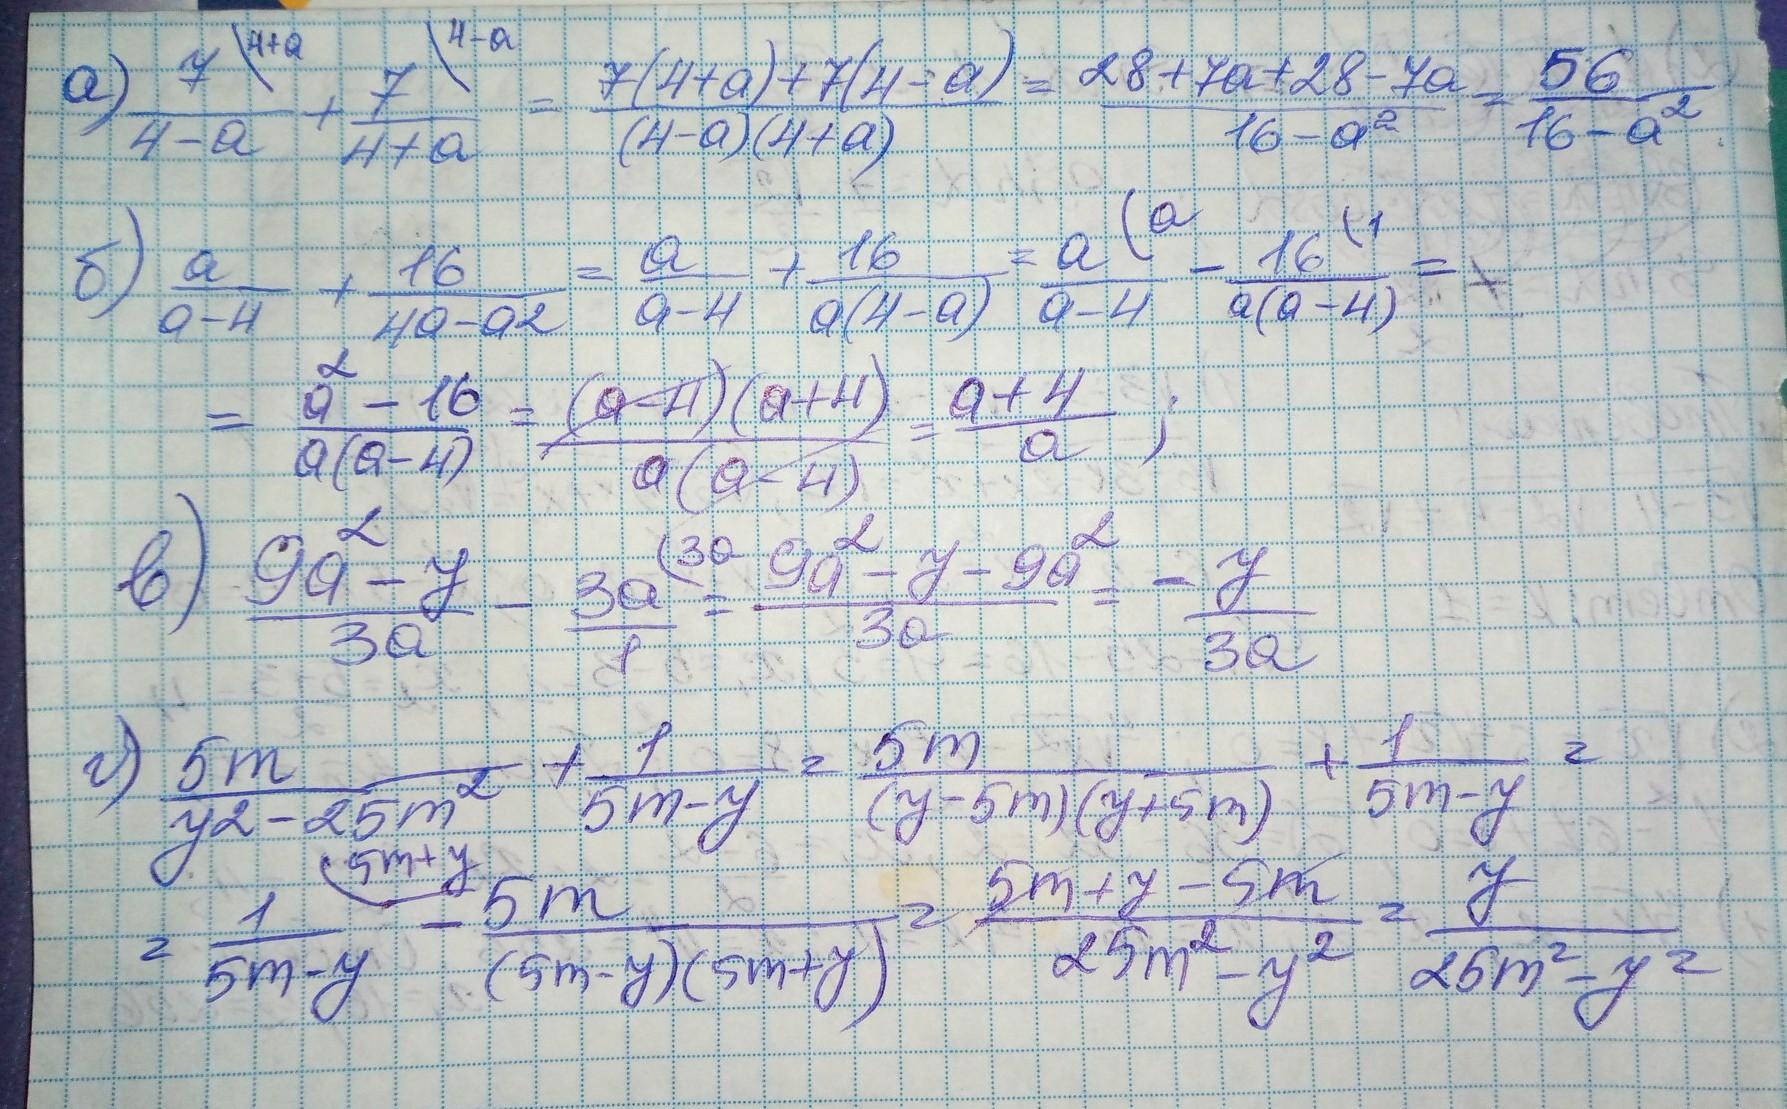 а) 7\4+a / 4-a + 7\4-a / 4+a = 7(4+a)+7(4-a) / (4-a)(4+a) = 28+7a+28-7a / 16-a² = 56 / 16-a²
б) a / a-4 + 16 / 4a-a2 = a / a-4 + 16 / a(4-a) = a(a / a-4 - 16(1 / a(a-4) =
= a²-16 / a(a-4) = (a-4)(a+4) / a(a-4) = a+4 / a ;
в) 9a²-y / 3a - 3a(3a / 1 = 9a²-y-9a² / 3a = - y / 3a
г) 5m / y2-25m² + 1 / 5m-y = 5m / (y-5m)(y+5m) + 1 / 5m-y =
= 1(5m+y / 5m-y - 5m / (5m-y)(5m+y) = 5m+y-5m / 25m²-y² = y / 25m²-y²